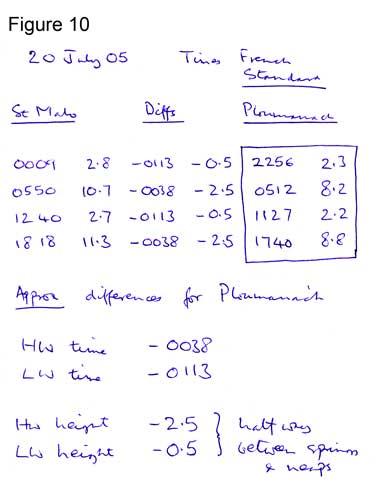 Figure 10
20 July 05 Times French
Standard
St Malo Diffs Ploumanach
0009 2.8 -0113 -0.5 2256 2.3
0550 10.7 -0038 -2.5 0512 8.2
1240 2.7 -0113 -0.5 1127 2.2
1818 11.3 -0038 -2.5 1740 8.8
Approx differences for Ploumanach
HW time -0038
LW time -0113
HW height -2.5 } half way
LW height -0.5 } between springs
& neaps